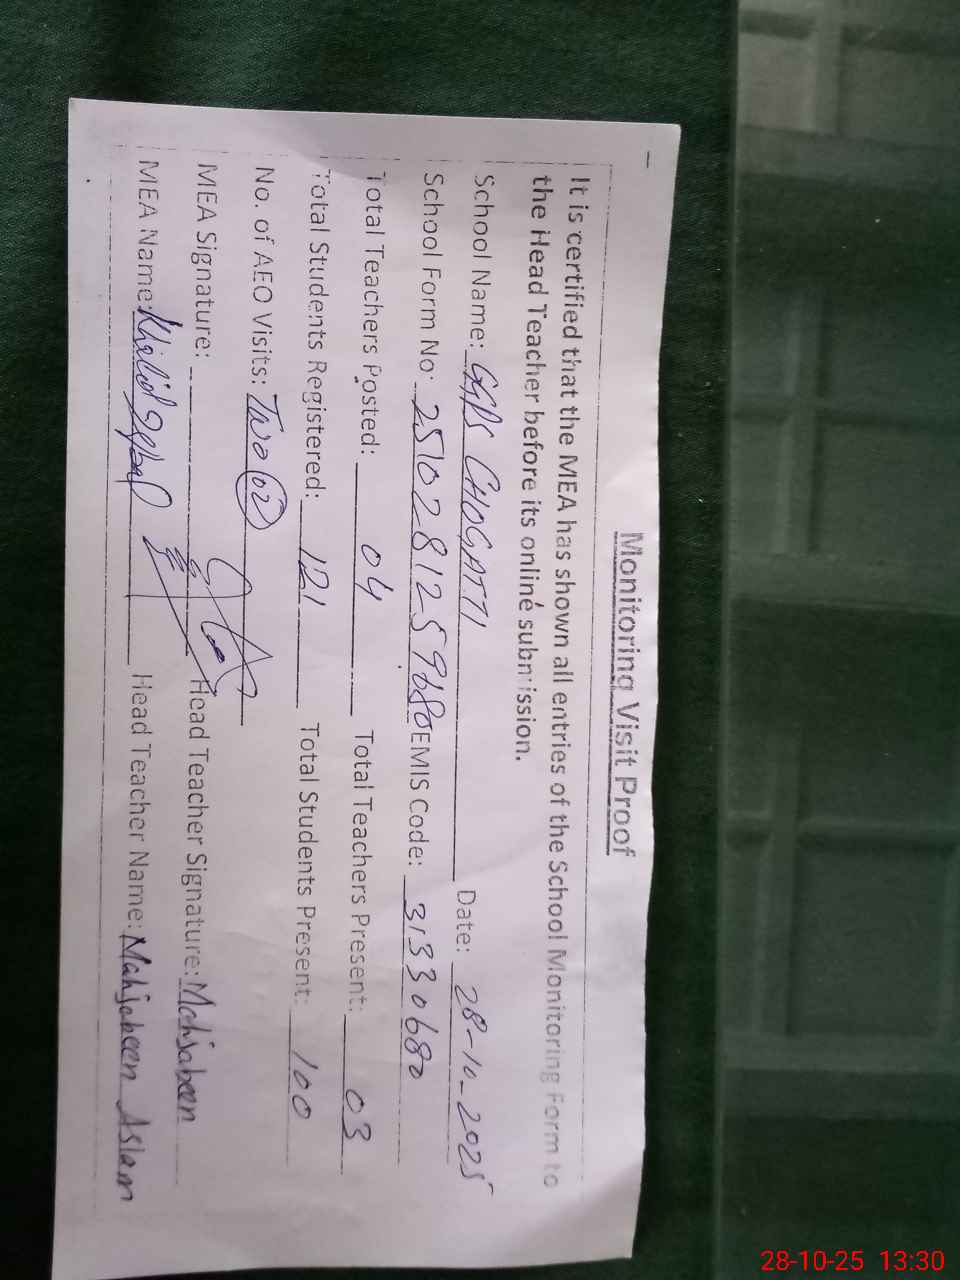 Monitoring Visit Proof
It is certified that the MEA has shown all entries of the School Monitoring Form to
the Head Teacher before its online submission.
School Name: GGPS CHOGATTI Date: 28-10-2025
School Form No: 2510281259680 EMIS Code: 31330680
Total Teachers Posted: 04 Total Teachers Present: 03
Total Students Registered: 121 Total Students Present: 100
No. of AEO Visits: Two (02)
MEA Signature: Head Teacher Signature: Mahjabeen
MEA Name: Khalid Iqbal Head Teacher Name: Mahjabeen Aslam
28-10-25 13:30